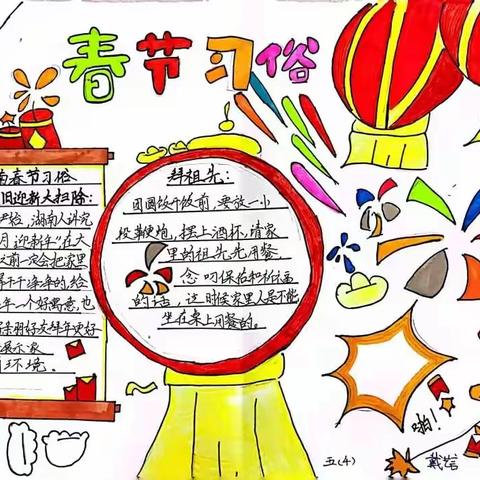 春节习俗
南春节习俗
旧迎新大扫除:
湖南人讲究
月迎新年"在大
前一定会把家里
干干净净的,给
年一个好寓意,也
好友拜年更好
展示家
环境.
拜祖先:
团圆饭开饭前,要放一小
段鞭炮,摆上酒杯,请家
里的祖先先用餐,
念叨保佑和祈福
的话,这时候家里人是不能
坐在桌上用餐的。
啪!!
五(4)
戴